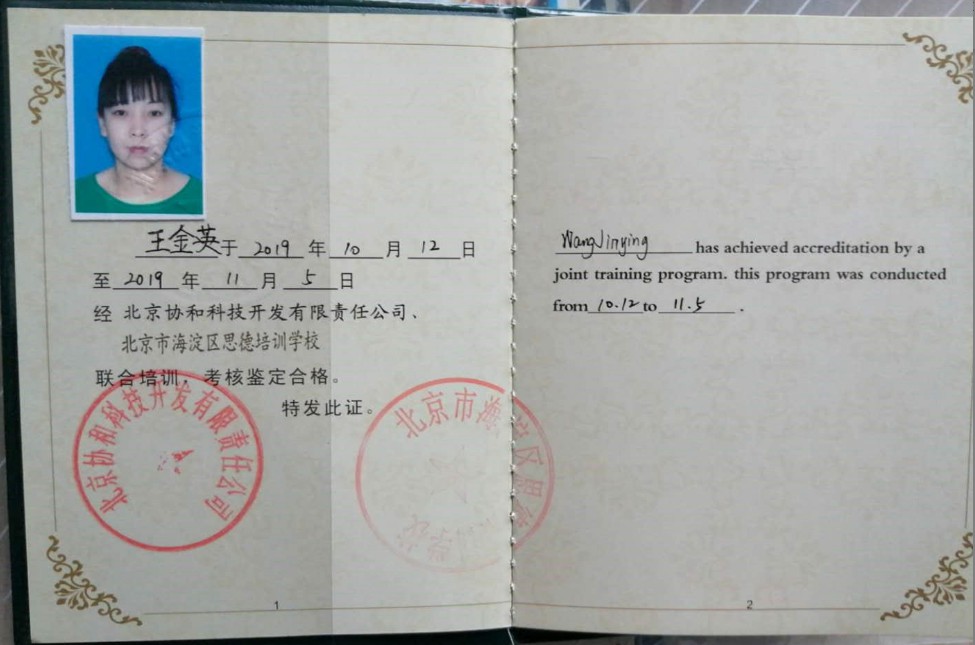 王金英于 2019 年 10 月 12 日
至 2019 年 11 月 5 日
经 北京协和科技开发有限责任公司、
北京市海淀区思德培训学校
联合培训，考核鉴定合格。
特发此证。
北京协和科技开发有限责任公司
北京市海淀区思德
学校
1
WangJinying has achieved accreditation by a
joint training program. this program was conducted
from 10.12 to 11.5 .
2